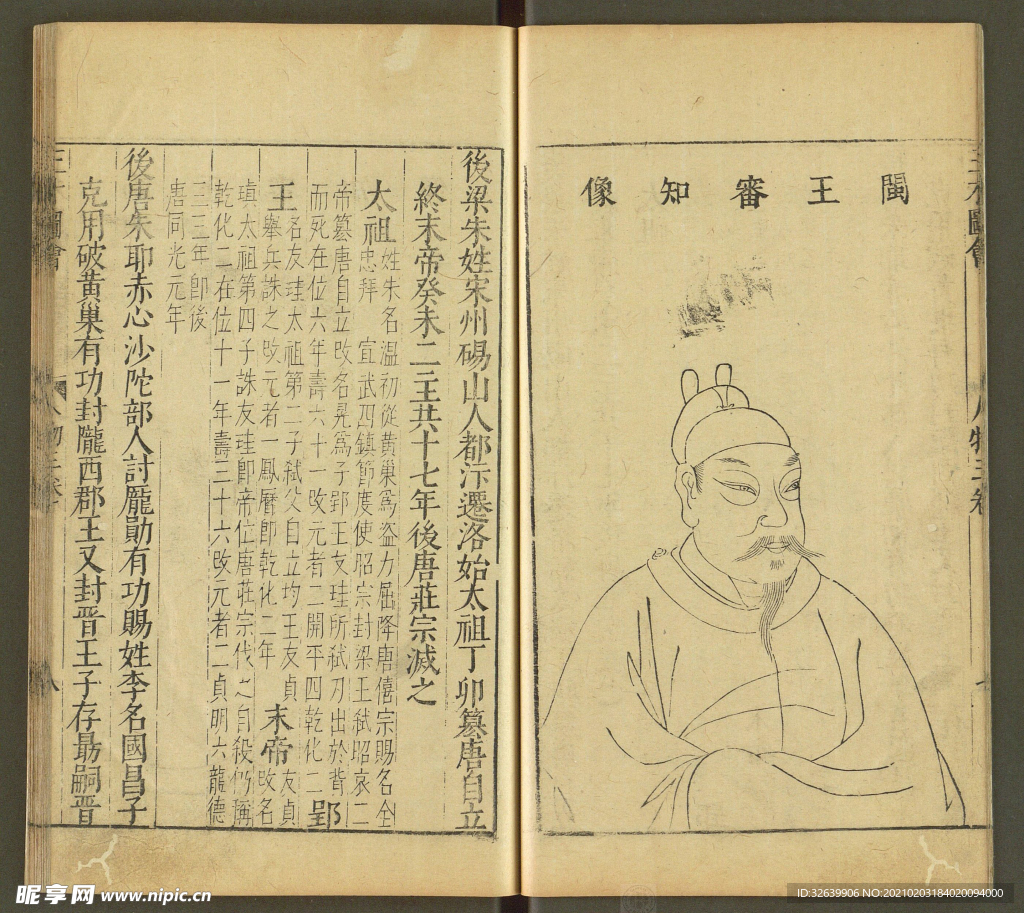 閩王審知像
三才圖會 人物三卷
後梁朱姓宋州碭山人都汴遷洛始太祖丁卯篡唐自立
終末帝癸未二主共十七年後唐莊宗滅之
太祖
姓朱名溫初從黃巢爲盜力屈降唐僖宗賜名全
忠拜 宣武四鎮節度使昭宗封梁王弒昭哀二
帝篡唐自立改名晃爲子郢王友珪所弒刃出於背
而死在位六年壽六十一改元者二開平四乾化二
郢
王
名友珪太祖第二子弒父自立均王友貞
舉兵誅之改元者一鳳曆即乾化二年
末帝
友貞
改名
瑱太祖第四子誅友珪即帝位唐莊宗代之自殺仍稱
乾化二在位十一年壽三十六改元者二貞明六龍德
三三年即後
唐同光元年
後唐朱耶赤心沙陀部人討龐勛有功賜姓李名國昌子
克用破黃巢有功封隴西郡王又封晉王子存勗嗣晉
昵享网 www.nipic.cn
ID:32639906 NO:20210203184020094000